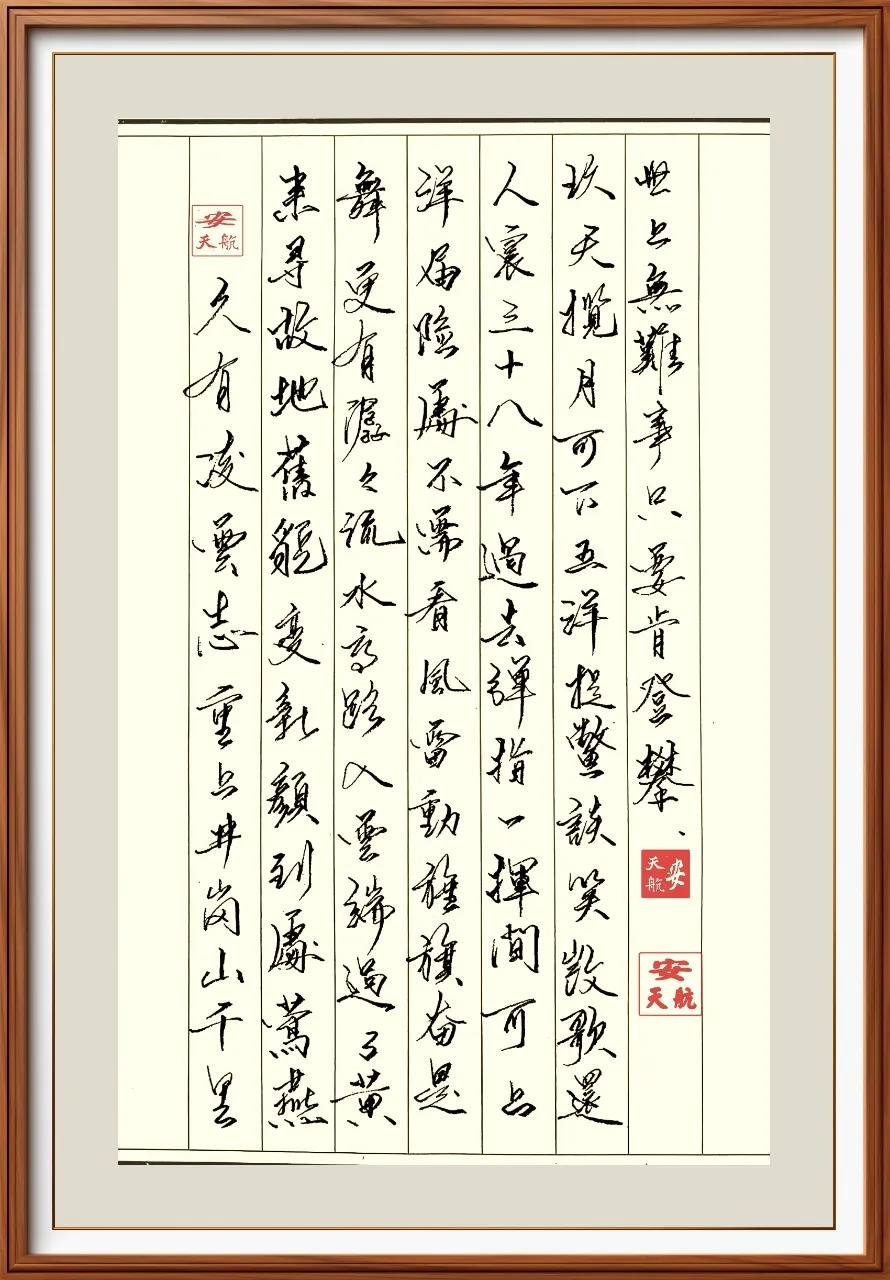 安
天航
久有凌雲志重上井崗山千里
来尋故地舊貌變新顏到處鶯燕
舞更有潺々流水高路入雲端過了黃
洋届險處不需看風雷動旌旗奮是
人寰三十八年過去彈指一揮間可上
玖天攬月可下五洋捉鱉談笑凱歌還
世上無難事只要肯登攀、
安
天航
安
天航